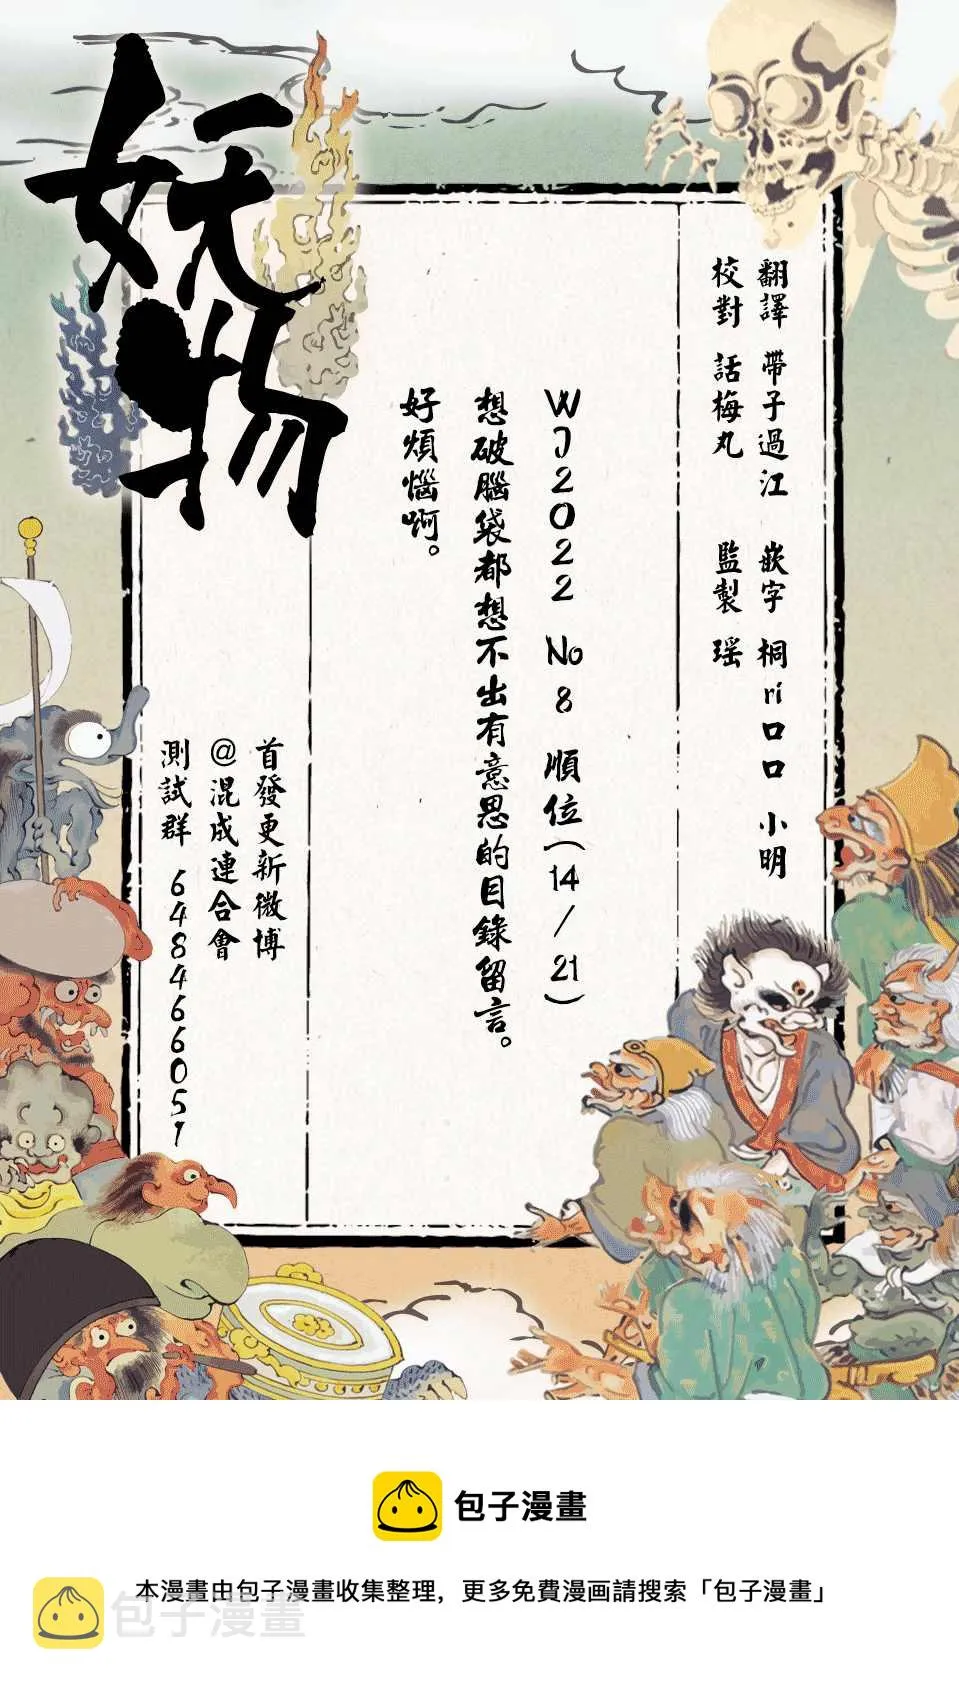 妖物
翻譯 帶子過江 嵌字 桐ri口口 小明
校對 話梅丸 監製 瑶
WJ2022 No8 順位(14/21)
想破腦袋都想不出有意思的目錄留言。
好煩惱啊。
首發更新微博
@混成連合會
測試群 648466051
包子漫畫
本漫畫由包子漫畫收集整理，更多免費漫画請搜索「包子漫畫」
包子漫畫